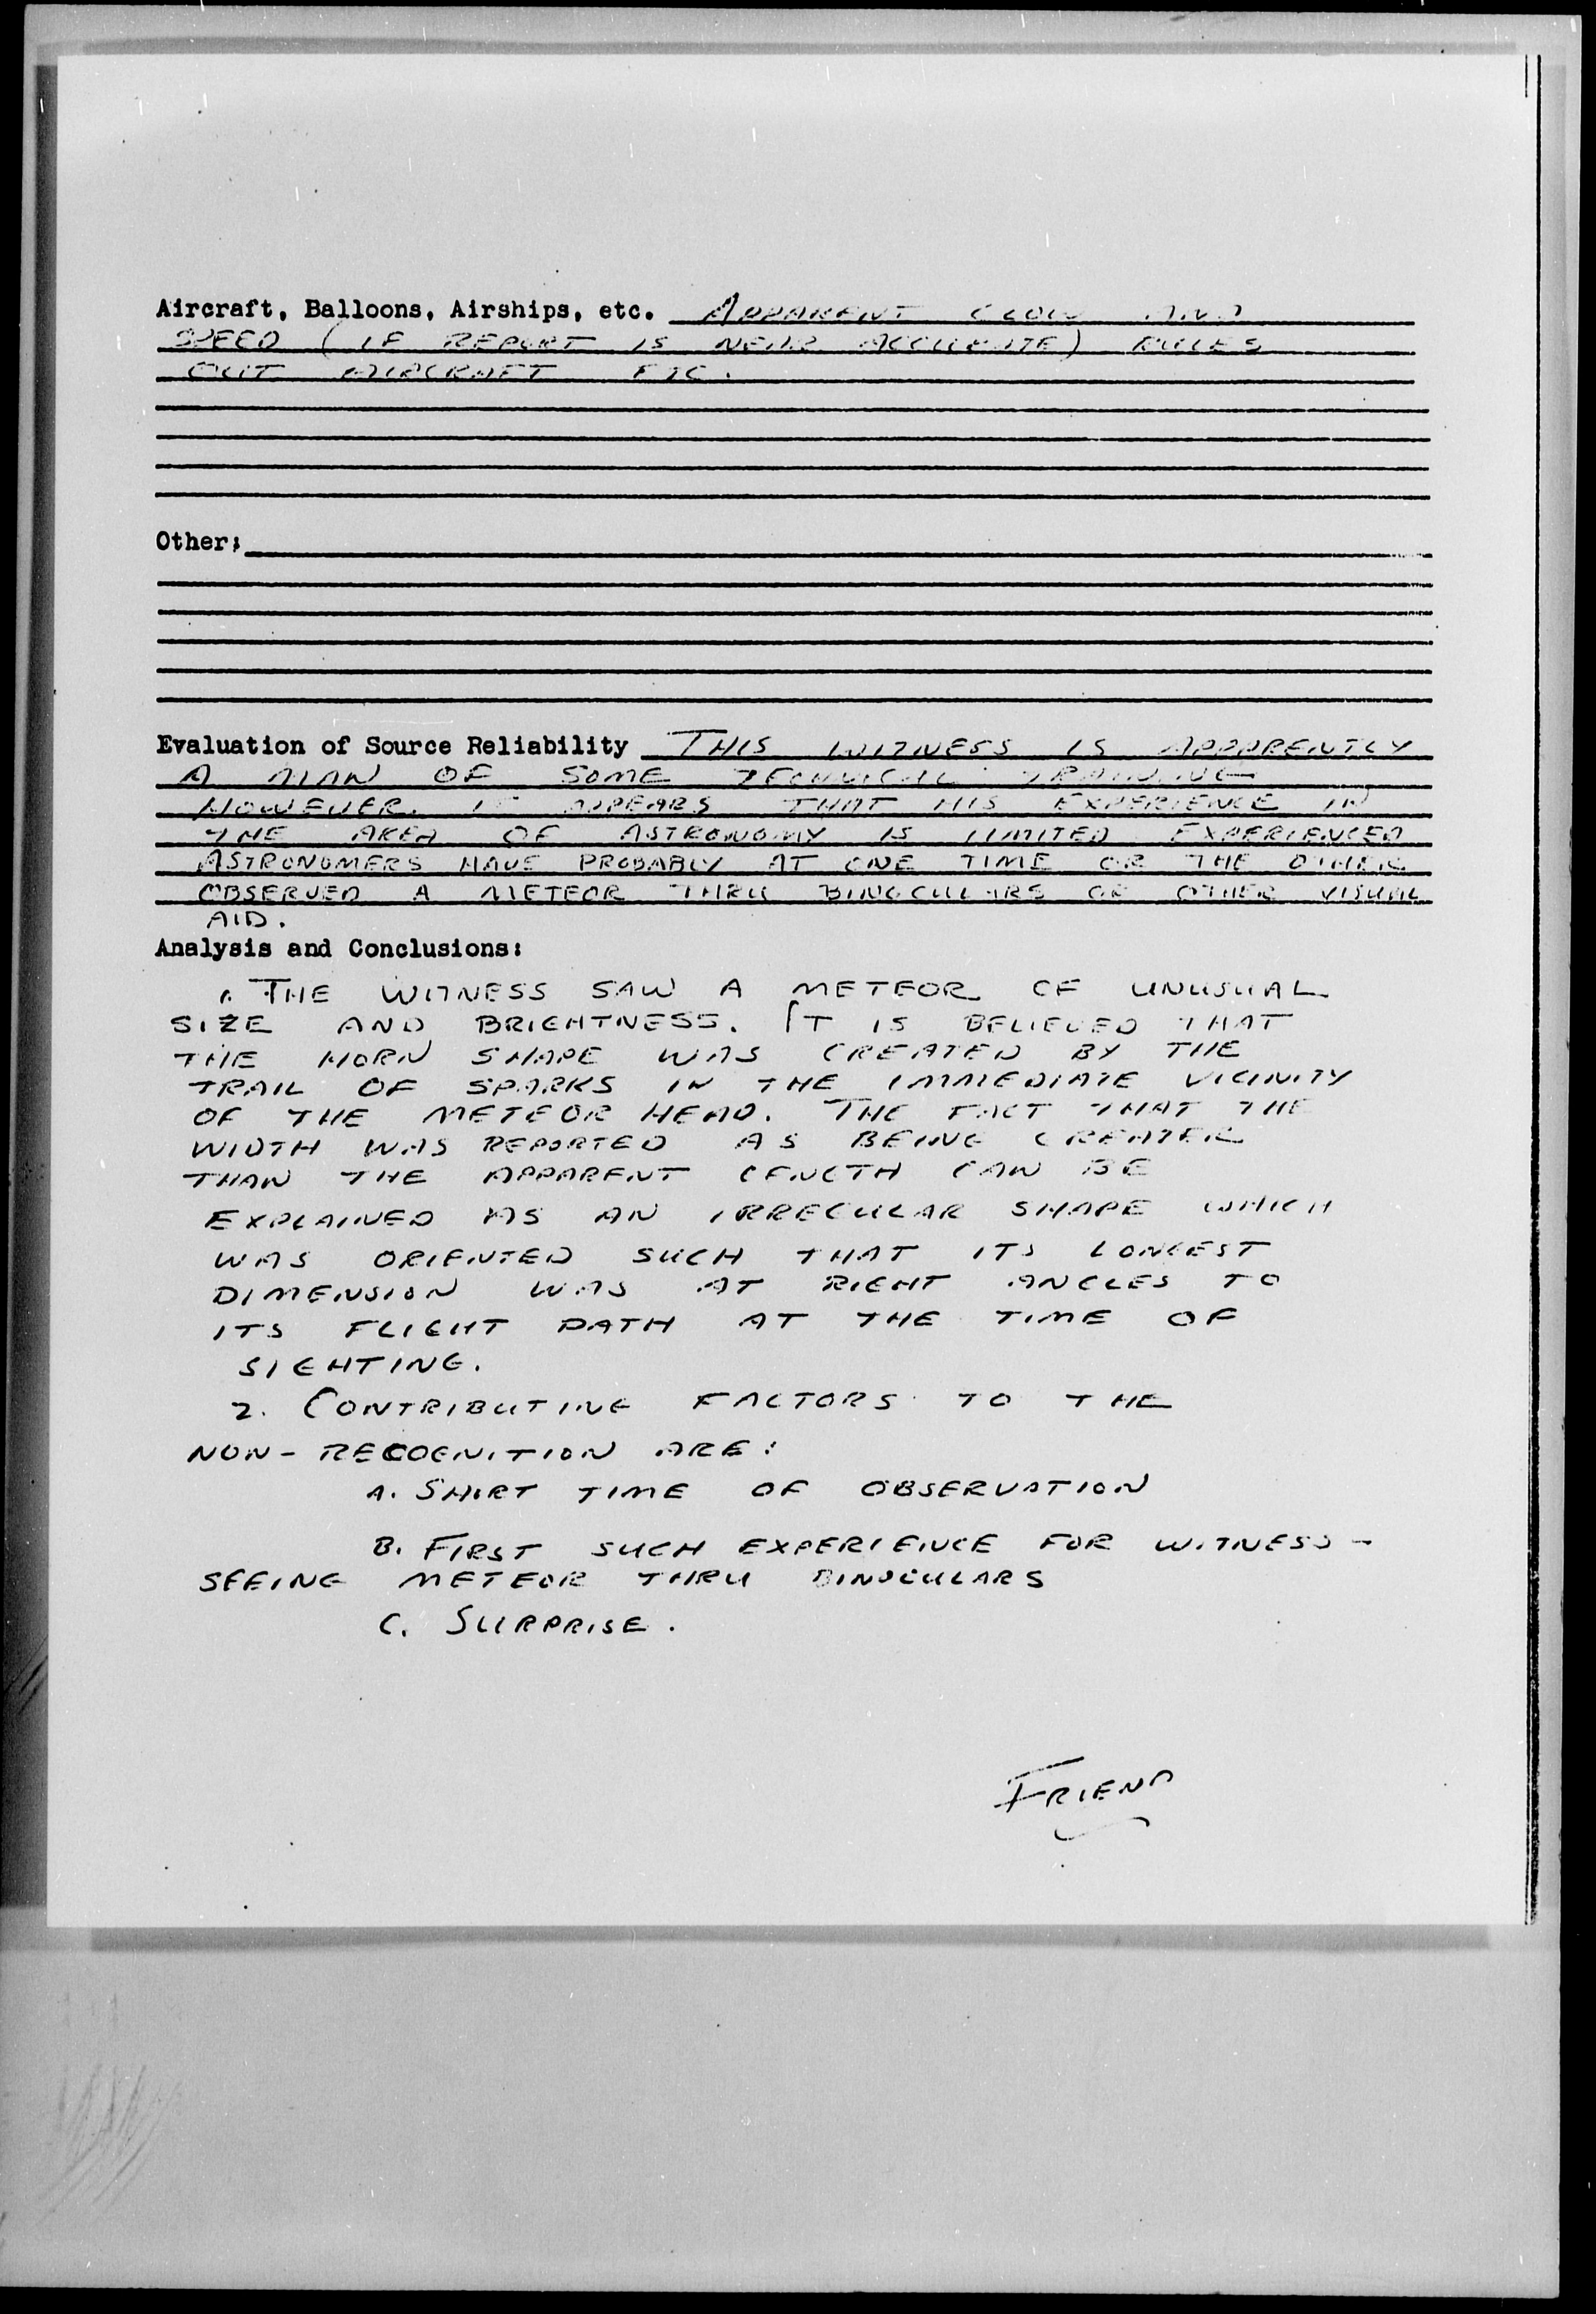 Aircraft, Balloons, Airships, etc. APPARENT GLOW AND
SPEED (IF REPORT IS NEAR ACCURATE) RULES
OUT AIRCRAFT ETC.
Other:
Evaluation of Source Reliability THIS WITNESS IS APPARENTLY
A MAN OF SOME TECHNICAL TRAINING
HOWEVER. IT APPEARS THAT HIS EXPERIENCE IN
THE AREA OF ASTRONOMY IS LIMITED EXPERIENCED
ASTRONOMERS HAVE PROBABLY AT ONE TIME OR THE OTHER
OBSERVED A METEOR THRU BINOCULARS OR OTHER VISUAL
AID.
Analysis and Conclusions:
1. THE WITNESS SAW A METEOR OF UNUSUAL
SIZE AND BRIGHTNESS. IT IS BELIEVED THAT
THE HORN SHAPE WAS CREATED BY THE
TRAIL OF SPARKS IN THE IMMEDIATE VICINITY
OF THE METEOR HEAD. THE FACT THAT THE
WIDTH WAS REPORTED AS BEING GREATER
THAN THE APPARENT LENGTH CAN BE
EXPLAINED AS AN IRREGULAR SHAPE WHICH
WAS ORIENTED SUCH THAT ITS LONGEST
DIMENSION WAS AT RIGHT ANGLES TO
ITS FLIGHT PATH AT THE TIME OF
SIGHTING.
2. CONTRIBUTING FACTORS TO THE
NON-RECOGNITION ARE:
A. SHORT TIME OF OBSERVATION
B. FIRST SUCH EXPERIENCE FOR WITNESS -
SEEING METEOR THRU BINOCULARS
C. SURPRISE.
FRIEND